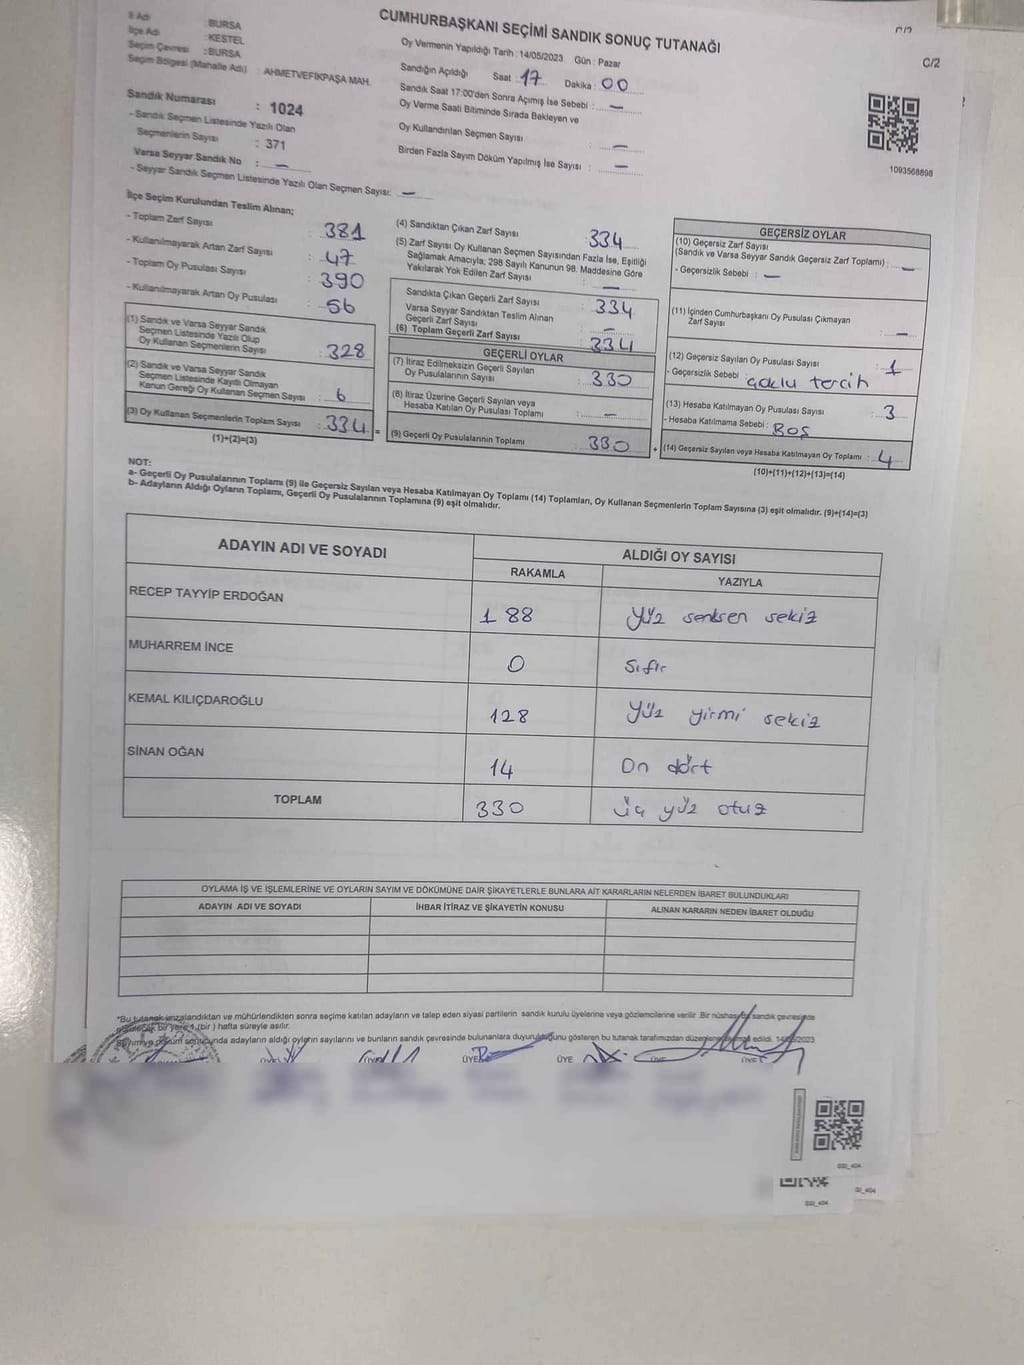 CUMHURBAŞKANI SEÇİMİ SANDIK SONUÇ TUTANAĞI
C/2
İl Adı : BURSA
İlçe Adı : KESTEL
Seçim Çevresi : BURSA
Seçim Bölgesi (Mahalle Adı) : AHMETVEFİKPAŞA MAH.
Sandık Numarası : 1024
- Sandık Seçmen Listesinde Yazılı Olan
Seçmenlerin Sayısı : 371
Varsa Seyyar Sandık No : —
- Seyyar Sandık Seçmen Listesinde Yazılı Olan Seçmen Sayısı: —
Oy Vermenin Yapıldığı Tarih : 14/05/2023 Gün : Pazar
Sandığın Açıldığı Saat : 17 Dakika : 00
Sandık Saat 17:00'den Sonra Açımış İse Sebebi : —
Oy Verme Saati Bitiminde Sırada Bekleyen ve
Oy Kullandırılan Seçmen Sayısı —
Birden Fazla Sayım Döküm Yapılmış İse Sayısı : —
1093568898
İlçe Seçim Kurulundan Teslim Alınan;
- Toplam Zarf Sayısı : 381
- Kullanılmayarak Artan Zarf Sayısı : 47
- Toplam Oy Pusulası Sayısı : 390
- Kullanılmayarak Artan Oy Pusulası : 56
(1) Sandık ve Varsa Seyyar Sandık
Seçmen Listesinde Yazılı Olup
Oy Kullanan Seçmenlerin Sayısı : 328
(2) Sandık ve Varsa Seyyar Sandık
Seçmen Listesinde Kayıtlı Olmayan
Kanun Gereği Oy Kullanan Seçmen Sayısı : 6
(3) Oy Kullanan Seçmenlerin Toplam Sayısı : 334 =
(1)+(2)=(3)
(4) Sandıktan Çıkan Zarf Sayısı : 334
(5) Zarf Sayısı Oy Kullanan Seçmen Sayısından Fazla İse, Eşitliği
Sağlamak Amacıyla; 298 Sayılı Kanunun 98. Maddesine Göre
Yakılarak Yok Edilen Zarf Sayısı : —
Sandıkta Çıkan Geçerli Zarf Sayısı : 334
Varsa Seyyar Sandıktan Teslim Alınan
Geçerli Zarf Sayısı : —
(6) Toplam Geçerli Zarf Sayısı : 334
GEÇERLİ OYLAR
(7) İtiraz Edilmeksizin Geçerli Sayılan
Oy Pusulalarının Sayısı : 330
(8) İtiraz Üzerine Geçerli Sayılan veya
Hesaba Katılan Oy Pusulası Toplamı : —
(9) Geçerli Oy Pusulalarının Toplamı : 330 +
GEÇERSİZ OYLAR
(10) Geçersiz Zarf Sayısı
(Sandık ve Varsa Seyyar Sandık Geçersiz Zarf Toplamı) : —
- Geçersizlik Sebebi : —
(11) İçinden Cumhurbaşkanı Oy Pusulası Çıkmayan
Zarf Sayısı : —
(12) Geçersiz Sayılan Oy Pusulası Sayısı : 1
- Geçersizlik Sebebi : Çoklu tercih
(13) Hesaba Katılmayan Oy Pusulası Sayısı : 3
- Hesaba Katılmama Sebebi : Boş
(14) Geçersiz Sayılan veya Hesaba Katılmayan Oy Toplamı : 4
(10)+(11)+(12)+(13)=(14)
NOT:
a- Geçerli Oy Pusulalarının Toplamı (9) ile Geçersiz Sayılan veya Hesaba Katılmayan Oy Toplamı (14) Toplamları, Oy Kullanan Seçmenlerin Toplam Sayısına (3) eşit olmalıdır. (9)+(14)=(3)
b- Adayların Aldığı Oyların Toplamı, Geçerli Oy Pusulalarının Toplamına (9) eşit olmalıdır.
ADAYIN ADI VE SOYADI
ALDIĞI OY SAYISI
RAKAMLA YAZIYLA
RECEP TAYYİP ERDOĞAN 188 Yüz senksen sekiz
MUHARREM İNCE 0 Sıfır
KEMAL KILIÇDAROĞLU 128 Yüz yirmi sekiz
SİNAN OĞAN 14 On dört
TOPLAM 330 üç yüz otuz
OYLAMA İŞ VE İŞLEMLERİNE VE OYLARIN SAYIM VE DÖKÜMÜNE DAİR ŞİKAYETLERLE BUNLARA AİT KARARLARIN NELERDEN İBARET BULUNDUKLARI
ADAYIN ADI VE SOYADI İHBAR İTİRAZ VE ŞİKAYETİN KONUSU ALINAN KARARIN NEDEN İBARET OLDUĞU
*Bu tutanak imzalandıktan ve mühürlendikten sonra seçime katılan adayların ve talep eden siyasi partilerin sandık kurulu üyelerine veya gözlemcilerine verilir. Bir nüshası da sandık çevresinde
bir yere 1 (bir) hafta süreyle asılır.
sonucunda adayların aldığı oyların sayılarını ve bunların sandık çevresinde bulunanlara duyurulduğunu gösteren bu tutanak tarafımızdan edildi. 14/05/2023
ÜYE ÜYE ÜYE
SSI_404
SSI_404
SSI_404